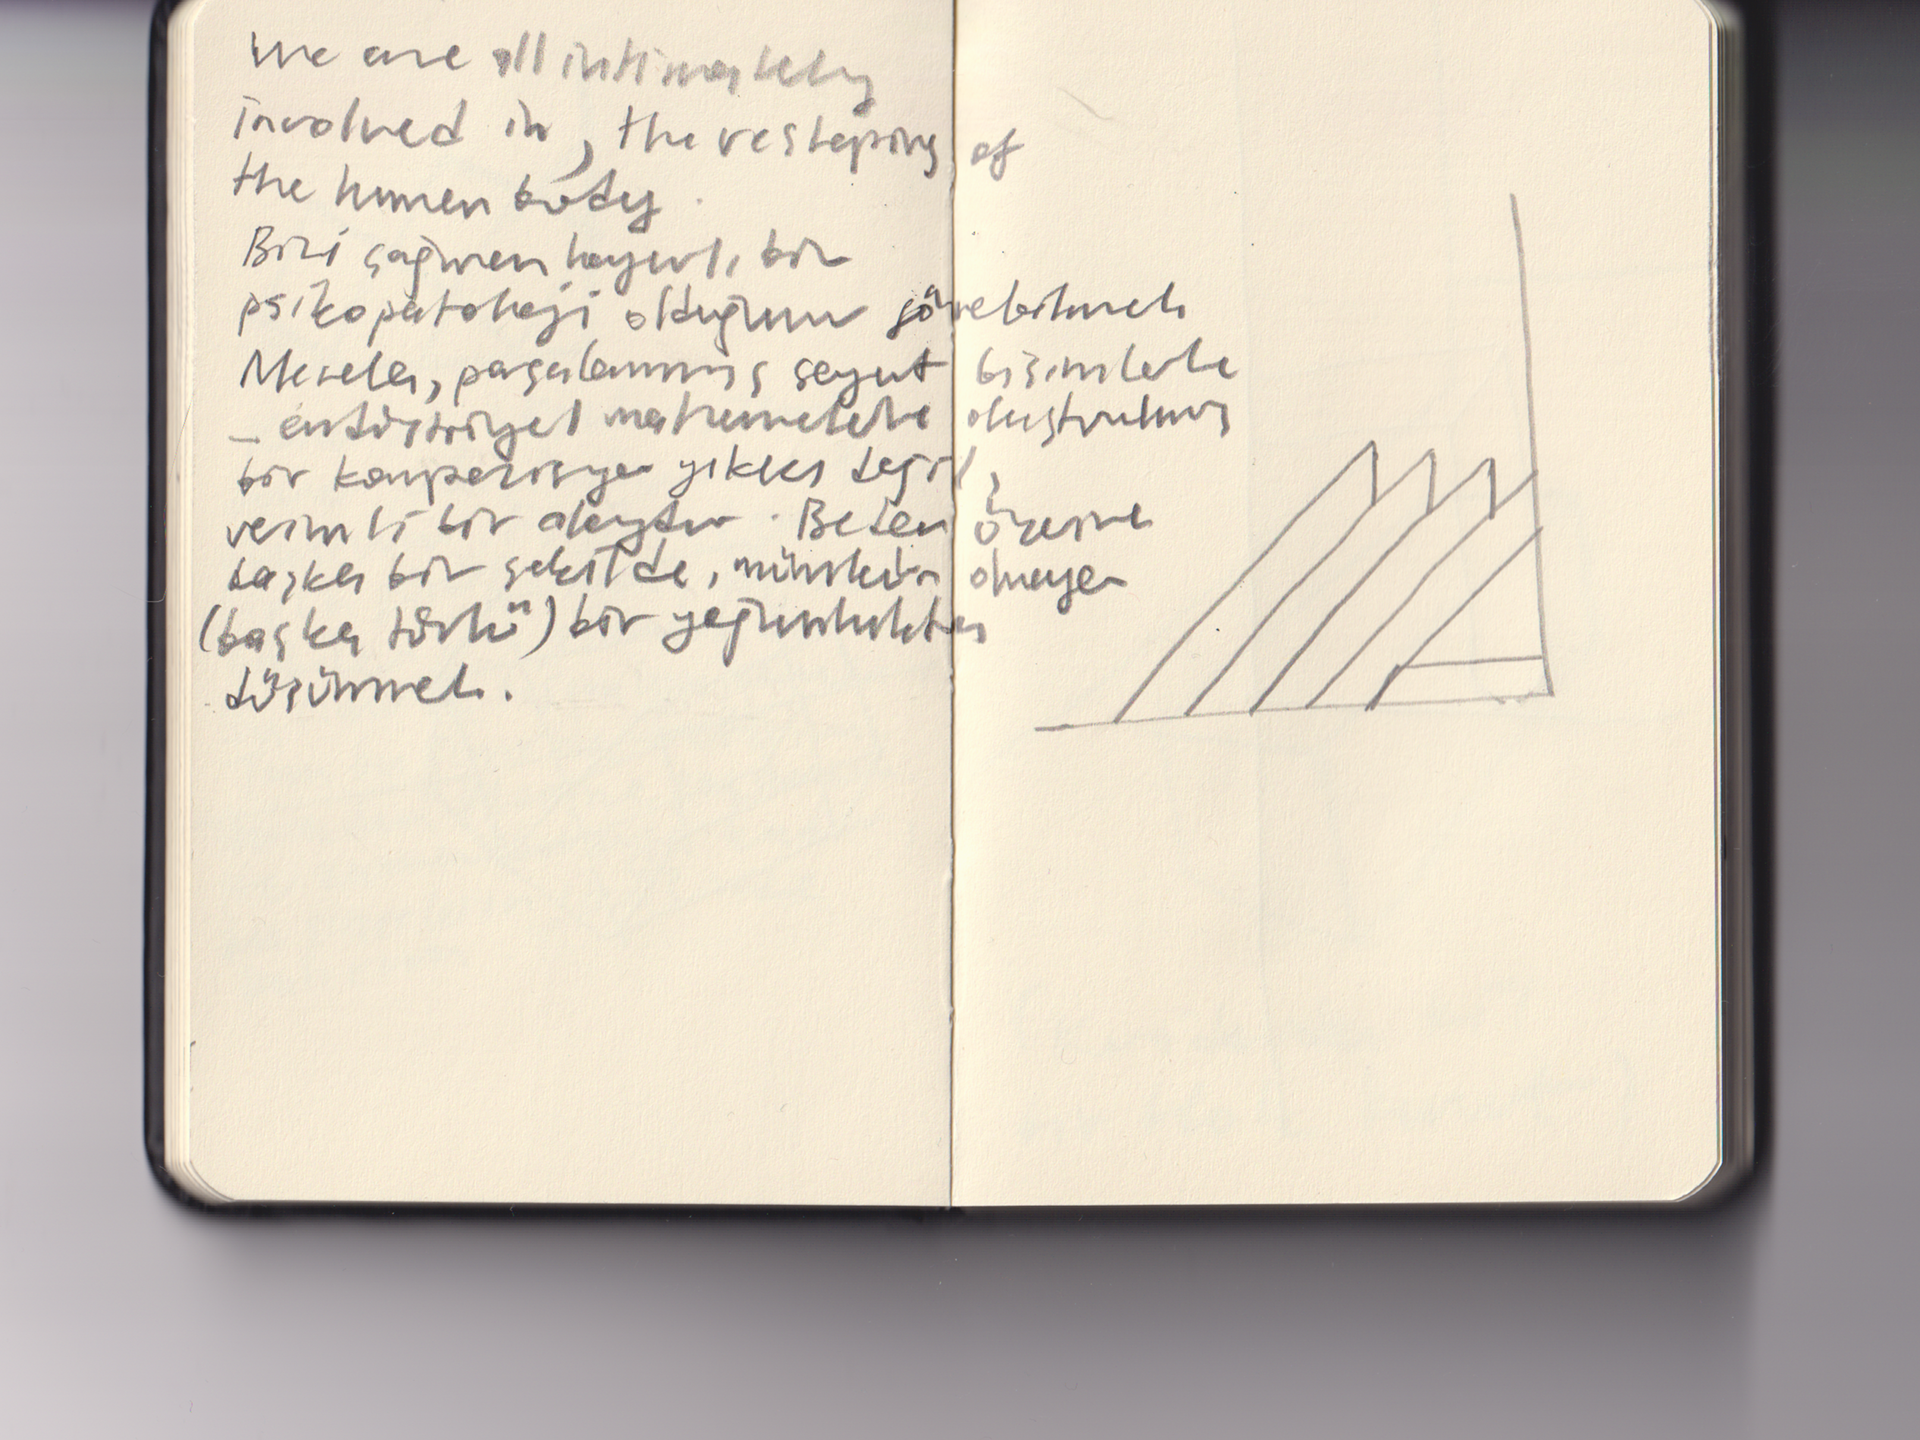 We are all intimately
involved in, the reshaping of
the human body.
Bizi çağıran hayırlı bir
psikopatoloji olduğunu görebilmek
Mesela, parçalanmış soyut bisimlerle
_ endüstriyel malzemelerle oluşturulmuş
bir kompozisyon yıkıcı değil,
verimli bir olaydır. Beden üzerine
başka bir şekilde, mümkün olmayan
(başka türlü) bir yoğunlukta
düşünmek.